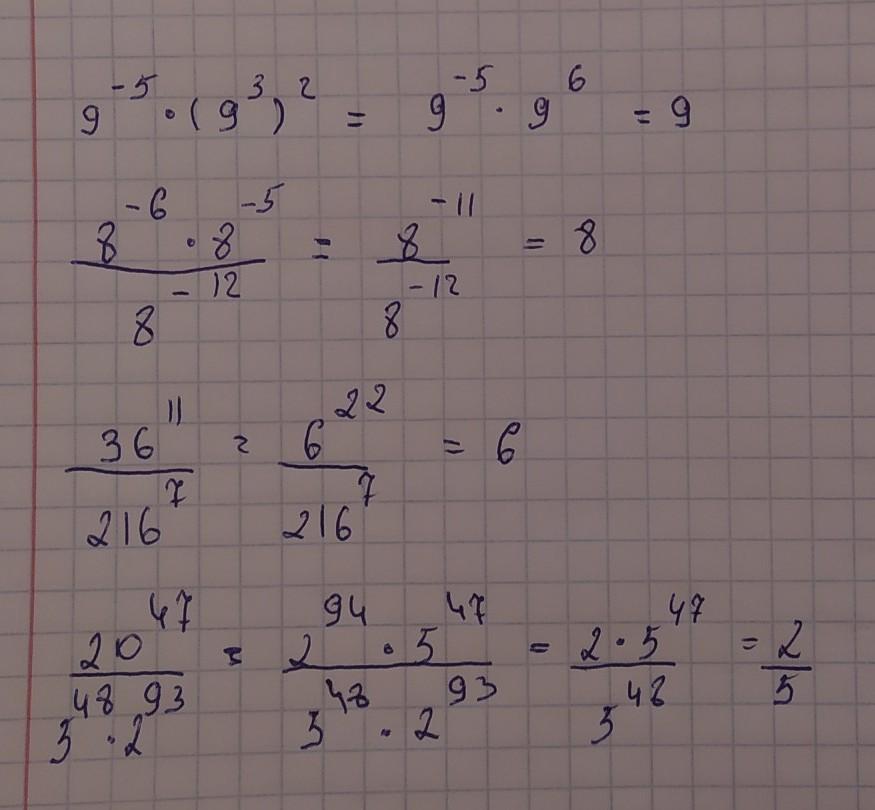 9^{-5} · (9^3)^2 = 9^{-5} · 9^6 = 9
\frac{8^{-6} · 8^{-5}}{8^{-12}} = \frac{8^{-11}}{8^{-12}} = 8
\frac{36^{11}}{216^7} = \frac{6^{22}}{216^7} = 6
\frac{20^{47}}{5^{48} · 2^{93}} = \frac{2^{94} · 5^{47}}{5^{48} · 2^{93}} = \frac{2 · 5^{47}}{5^{48}} = \frac{2}{5}